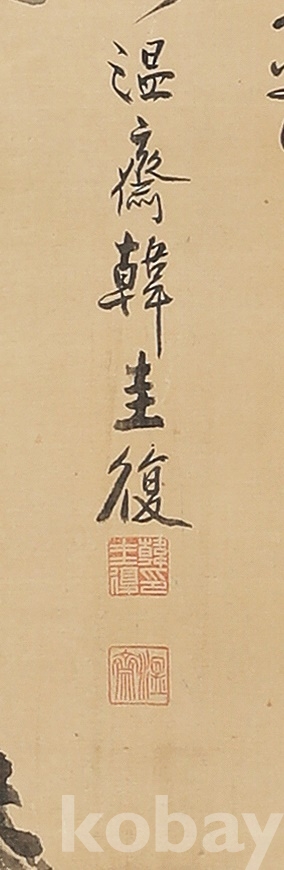 溫齋韓圭復
韓圭復印
溫齋
kobay